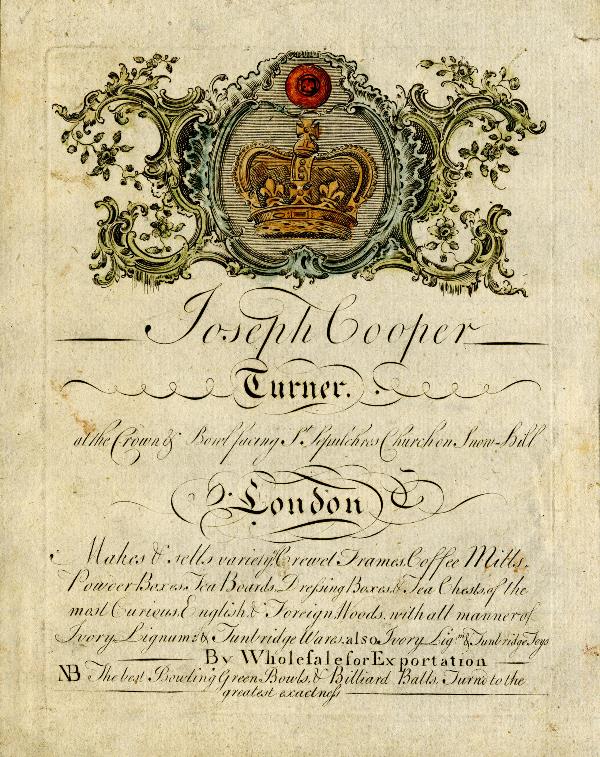 Joseph Cooper
Turner.
at the Crown & Bowl facing St. Sepulchres Church on Snow-Hill
London
Makes & sells variety Crewel Frames, Coffee Mills,
Powder Boxes, Tea Boards, Dreſsing Boxes, & Tea Chests, of the
most Curious, English, & Foreign Woods, with all manner of
Ivory, Lignumz & Tunbridge Wares, also Ivory Lig.m & Tunbridge Toys
By Wholeſale for Exportation
NB The best Bowling Green Bowls, & Billiard Balls, Turn'd to the
greatest exactneſs